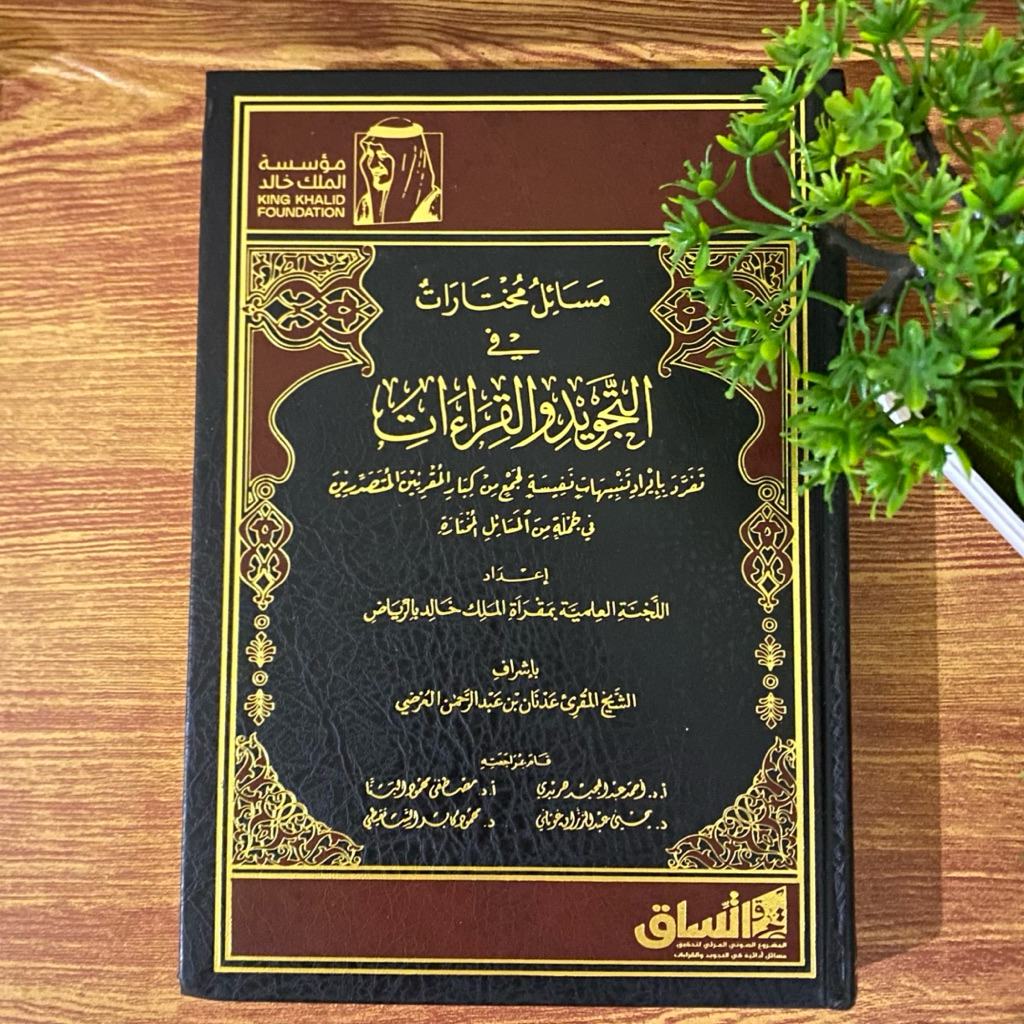 مؤسسة
الملك خالد
KING KHALID
FOUNDATION
مَسَائِلُ مُخْتَارَاتٌ
فِي
التَّجْوِيْدِ وَالْقِرَاءَاتِ
تَفَرَّدَ بِإِيْرَادِ تَنْبِيهَاتٍ نَفِيسَةٍ لِجَمْعٍ مِنْ كِبَارِ المُقْرِئِيْنَ المُتَصَدِّرِيْنَ
فِي جُمْلَةٍ مِنَ المَسَائِلِ المُخْتَارَةِ
إعْدَاد
اللَّجْنَة العِلْمِيَّة بِمَقْرَأَةِ المَلِك خَالِد بِالرِّيَاضِ
بِإِشْرَافِ
الشَّيْخ المُقْرِئ عَدْنَان بن عَبْد الرَّحْمٰن العُرْضِي
قَامَ بِمُرَاجَعَتِهِ
أ.د. أحمد عبد المجيد هريدي
أ.د. مصطفى محمود البنا
د. عبد الرزاق
د. محمود كابر الشنقيطي
اتِّساق
المشروع الصوتي المرئي لتحقيق
مسائل أدائية في التجويد والقراءات